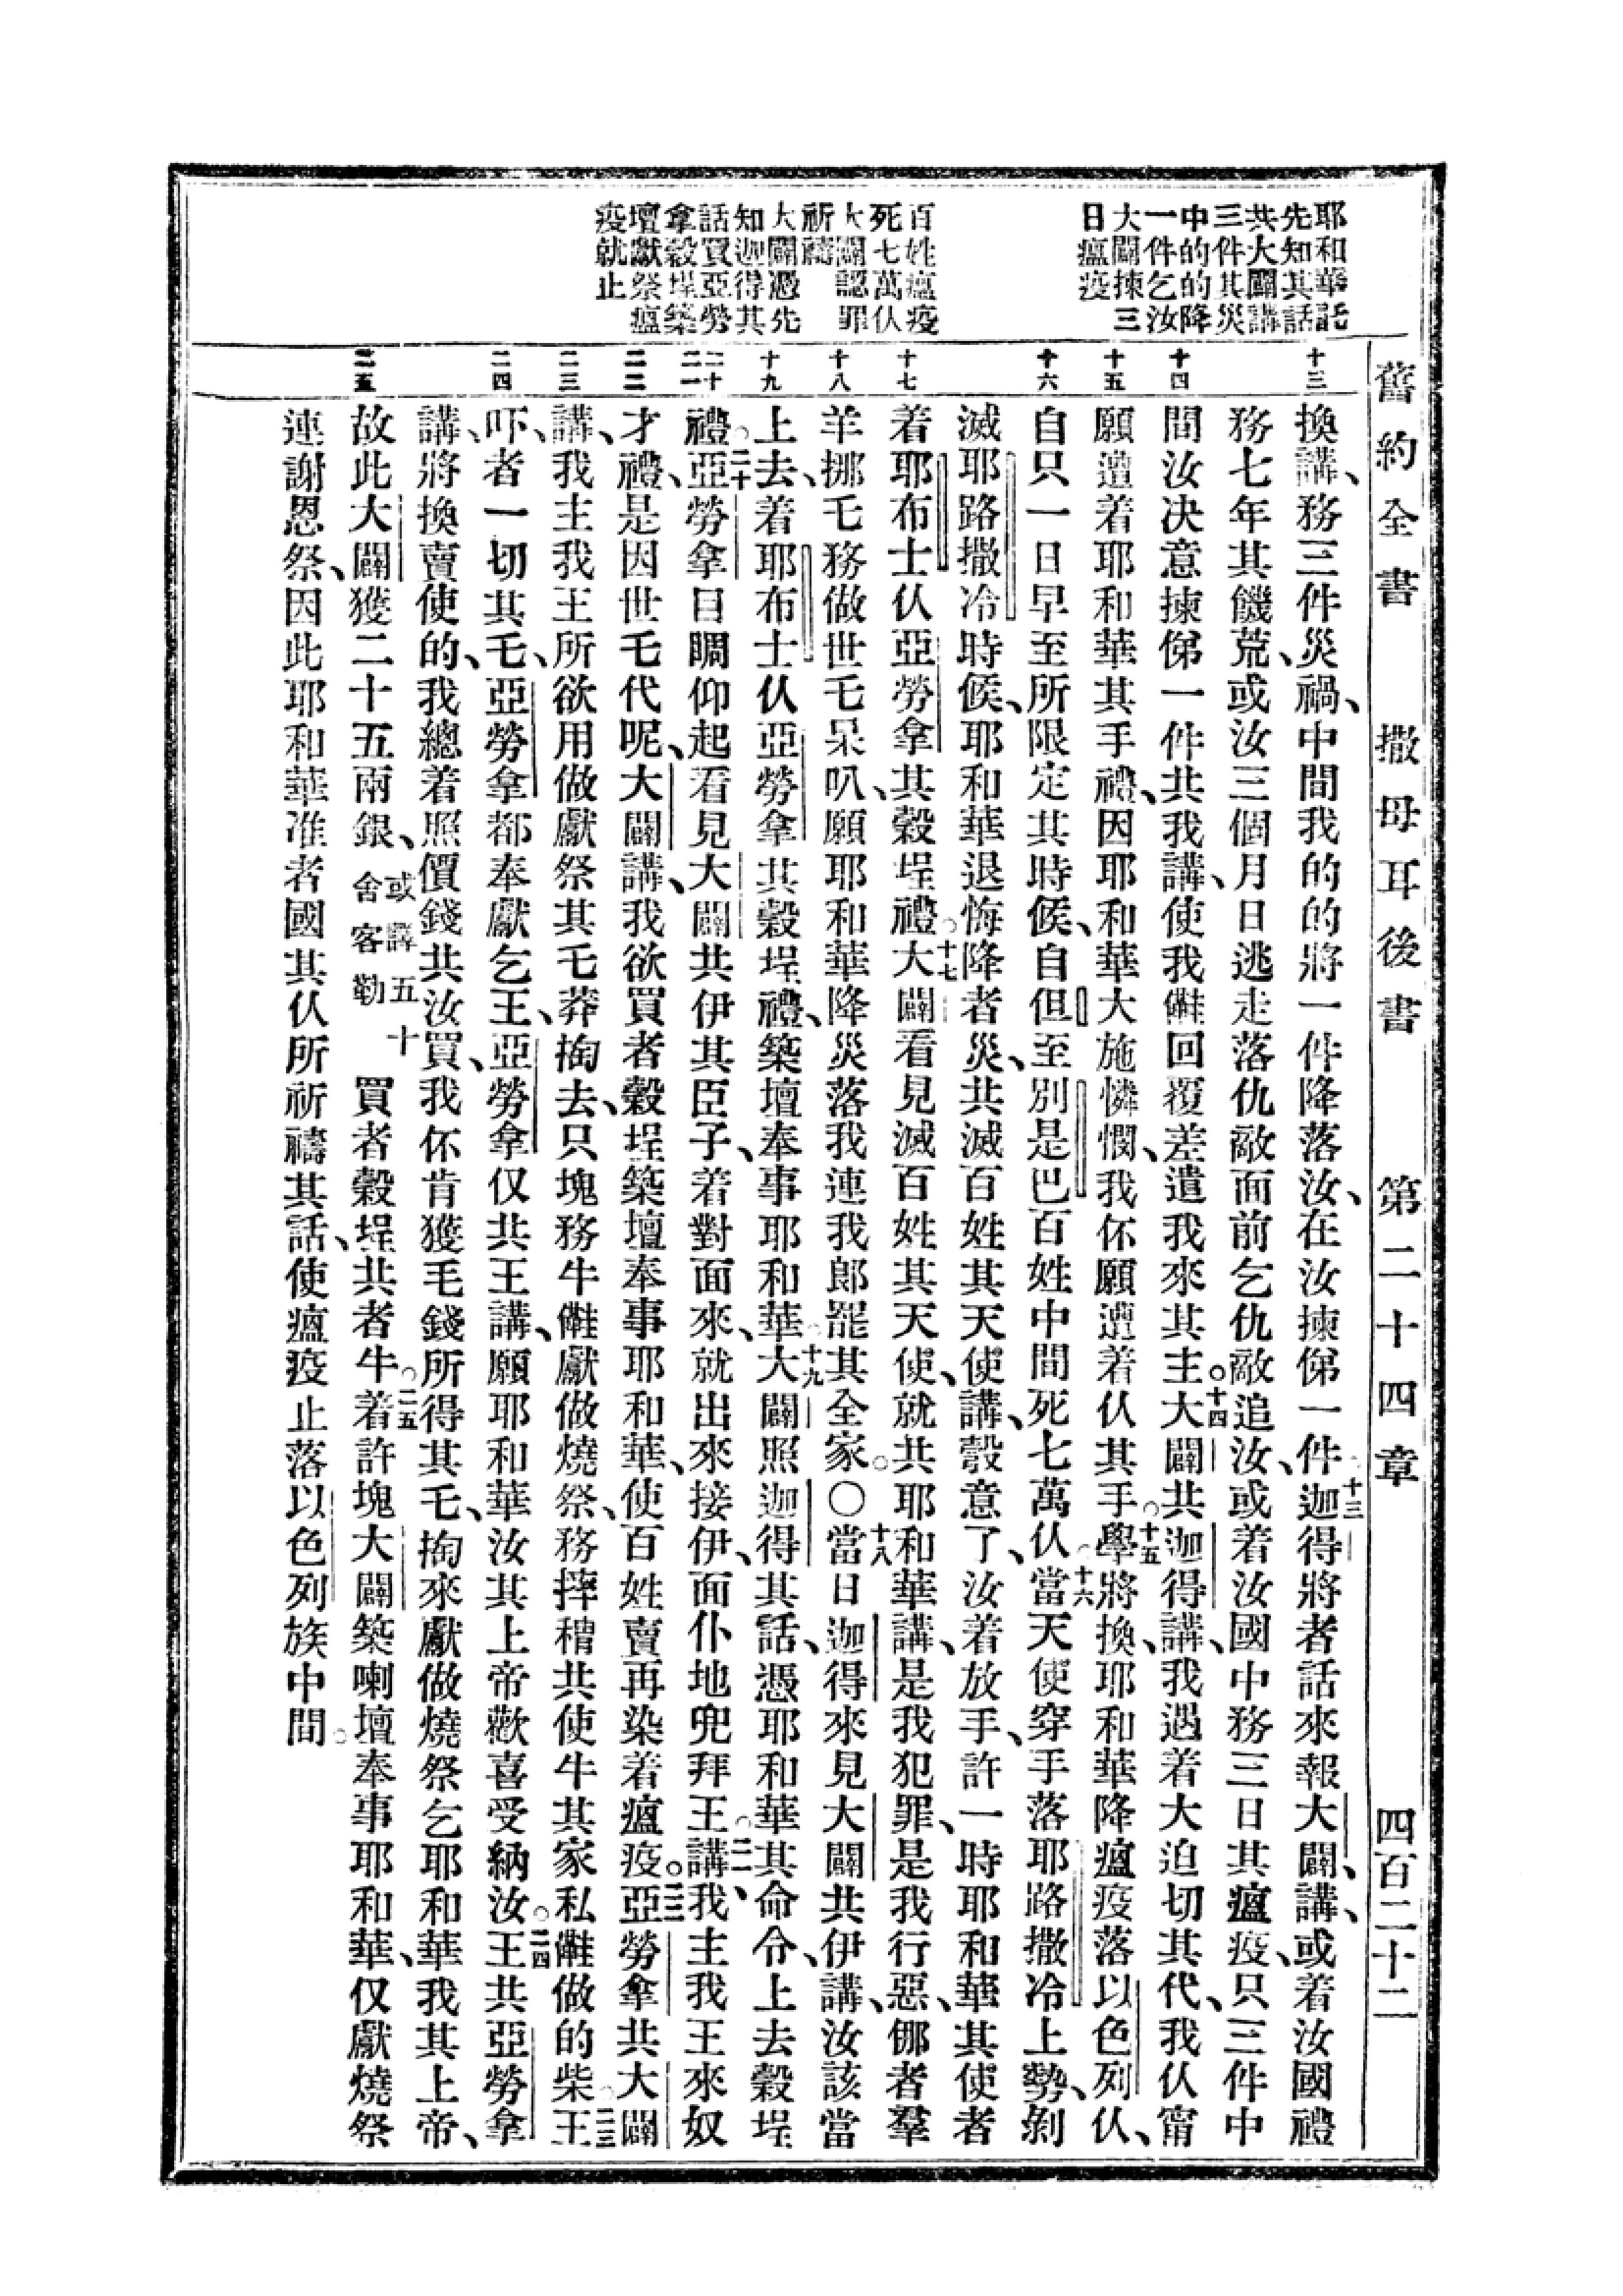 舊約全書 撒母耳後書 第二十四章 四百二十二
耶和華託
先知其話
共大闢講
三件其災
中的的降
一件乞汝
大闢揀三
日瘟疫
百姓瘟疫
死七萬仈
大闢認罪
祈禱
大闢憑先
知迦得其
話買亞勞
拿穀埕築
壇獻祭瘟
疫就止
十三
十四
十五
十六
十七
十八
十九
二十
二一
二二
二三
二四
二五
換講、務三件災禍、中間我的的將一件降落汝、在汝揀俤一件。十三迦得將者話來報大闢、講、或着汝國禮
務七年其饑荒、或汝三個月日逃走落仇敵面前乞仇敵追汝、或着汝國中務三日其瘟疫、只三件中
間汝決意揀俤一件共我講、使我𠆧回覆差遣我來其主。十四大闢共迦得講、我遇着大迫切其代、我仈甯
願遭着耶和華其手禮、因耶和華大施憐憫、我伓願遭着仈其手。十五學將換、耶和華降瘟疫落以色列仈、
自只一日早至所限定其時候、自但至別是巴百姓中間死七萬仈。十六當天使穿手落耶路撒冷上勢、剿
滅耶路撒冷時候、耶和華退悔降者災、共滅百姓其天使講、彀意了、汝着放手、許一時耶和華其使者
着耶布士仈亞勞拿其穀埕禮。十七大闢看見滅百姓其天使、就共耶和華講、是我犯罪、是我行惡、㑚者羣
羊挪乇務做世乇呆叭、願耶和華降災落我連我郎罷其全家。〇十八當日迦得來見大闢共伊講、汝該當
上去、着耶布士仈亞勞拿其穀埕禮、築壇奉事耶和華。十九大闢照迦得其話、憑耶和華其命令、上去穀埕
禮。二十亞勞拿目睭仰起看見大闢共伊其臣子、着對面來、就出來接伊、面仆地兜拜王。二一講、我主我王來奴
才禮、是因世乇代呢、大闢講、我欲買者穀埕築壇奉事耶和華、使百姓賣再染着瘟疫。二二亞勞拿共大闢
講、我主我王所欲用做獻祭其乇、莽掏去、只塊務牛𠆧獻做燒祭、務摔稽共使牛其家私𠆧做的柴。二三王
吓、者一切其乇、亞勞拿都奉獻乞王、亞勞拿仅共王講、願耶和華汝其上帝歡喜受納汝。二四王共亞勞拿
講、將換賣使的、我總着照價錢共汝買、我伓肯獲乇錢所得其乇、掏來獻做燒祭乞耶和華我其上帝、
故此大闢獲二十五兩銀、或譯五十舍客勒 買者穀埕、共者牛。二五着許塊大闢築喇壇奉事耶和華、仅獻燒祭
連謝恩祭、因此耶和華准者國其仈所祈禱其話、使瘟疫止落以色列族中間。